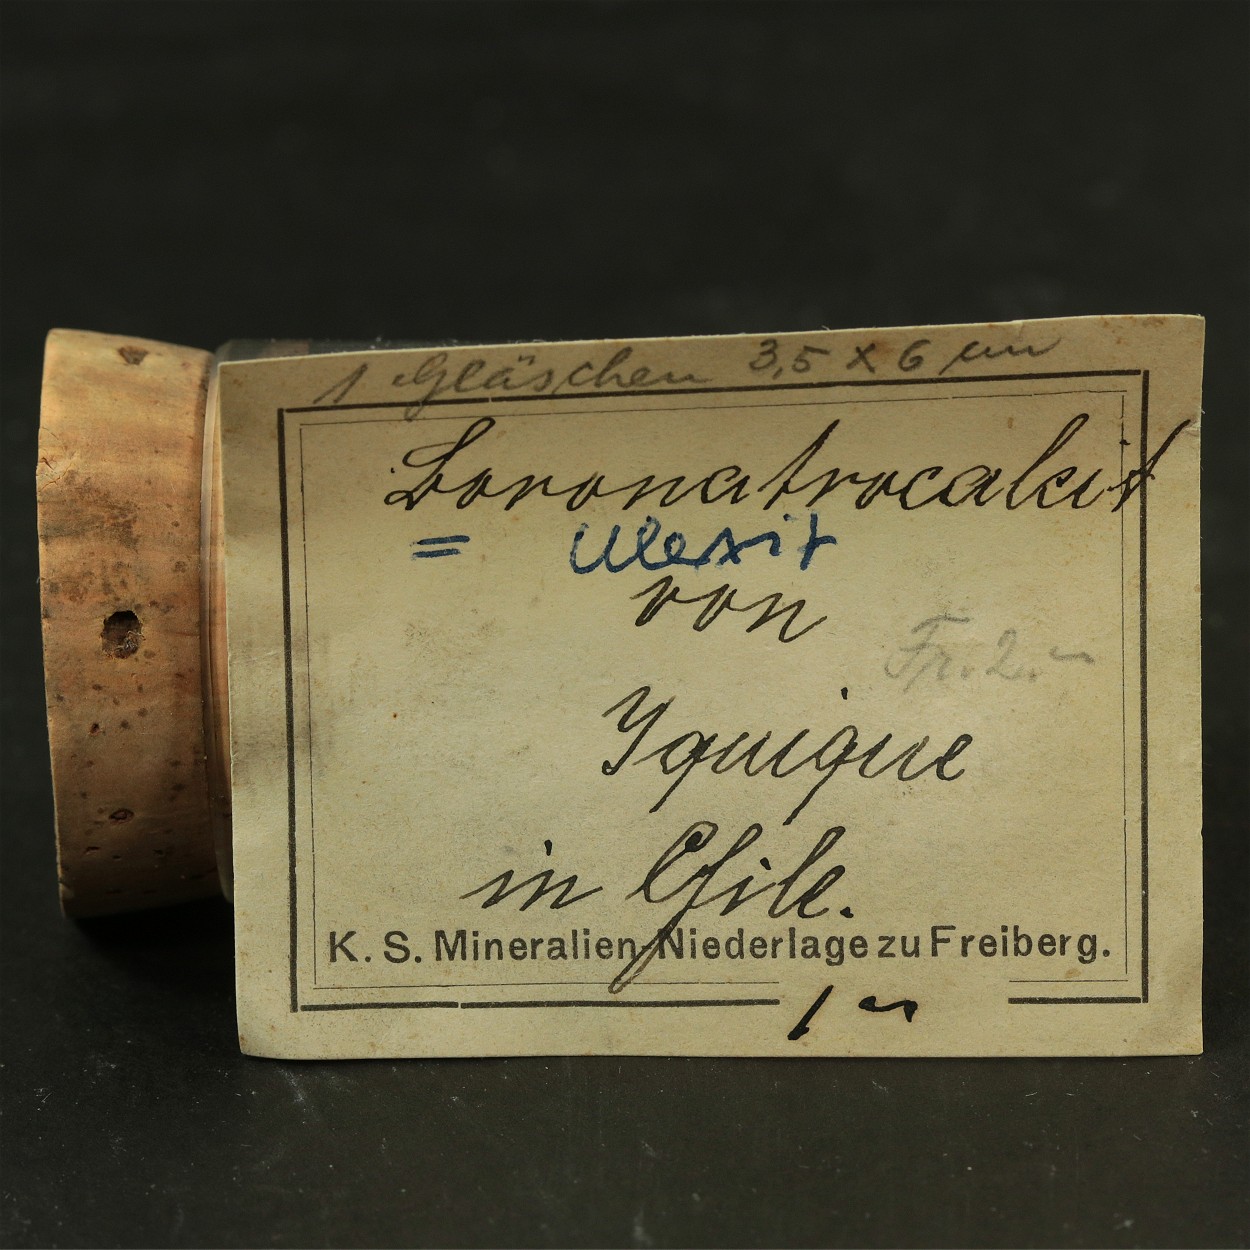 1 Gläschen 3,5 x 6 cm
Boronatrocalcit
= Ulexit
von
Fr. 2.-
Yquique
in Chile.
K. S. Mineralien-Niederlage zu Freiberg.
1 -